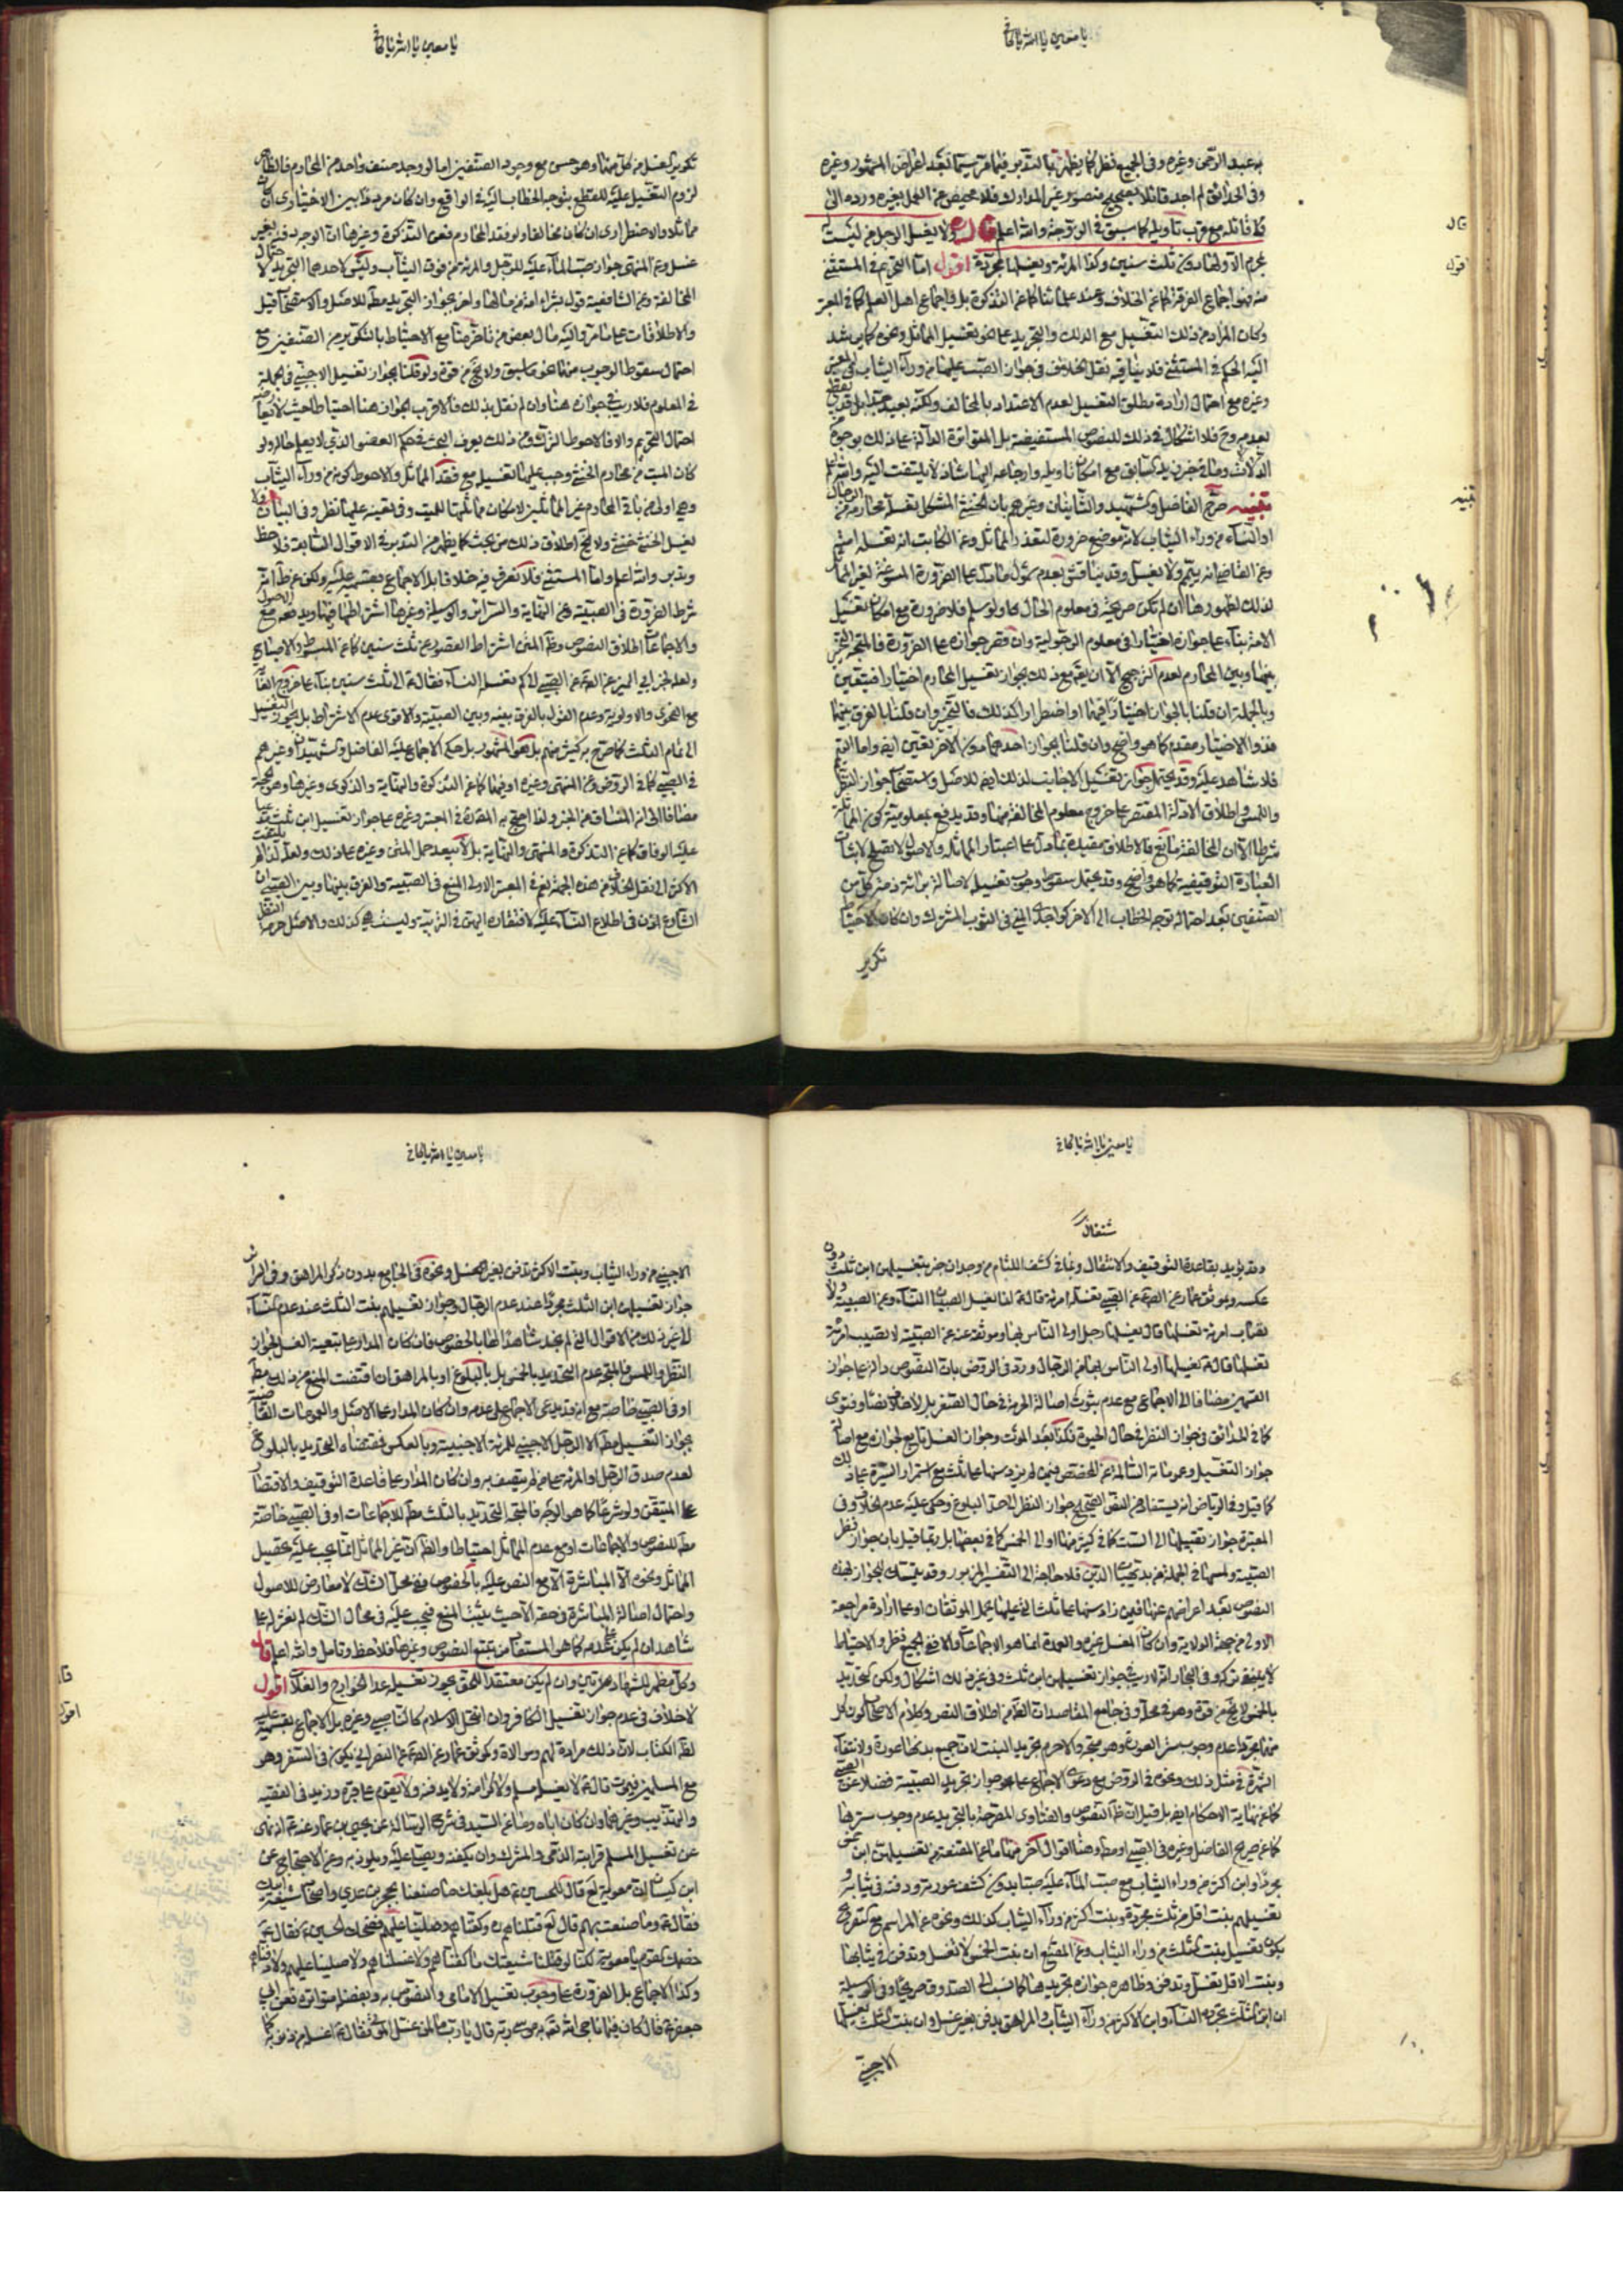 يا معين يا الله يا كافي
به عبد الرحمن وغيره وفي الجميع نظر كما يظهر بالتدبر فيما مر سيما بعد اعراض المشهور وغيره
وفي الحدائق لم اجد قائلا بصحيح منصور غير المدارك فلا محيص عن العمل بغيره ورده الى
قائله مع قرب تأويله كما سبق في الزوجة والله اعلم قال ولا يغسل الرجل من ليست
بمحرم الا ولها دون ثلث سنين وكذا المرئة ويغسلها مجردة اقول اما التحريم في المستثنى
منه فهو اجماع الفرقة كما عن الخلاف وعند علمائنا كما عن التذكرة بل واجماع اهل العلم كما في المعتبر
وكان المراد من ذلك التغسيل مع الدلك والتجريد على نحو تغسيل المماثل ونحوه كما يرشد
اليه الحكم في المستثنى فلا ينافيه نقل الخلاف في جواز الصب عليها من وراء الثياب في المعتبر
وغيره مع احتمال ارادة مطلق التغسيل لعدم الاعتداد بالمخالف ولكنه بعيد جدا بل قد يقطع
بعدمه وح فلا اشكال في ذلك للنصوص المستفيضة بل المتواترة الدالة على ذلك بوجوه
الدلالات وما في خبر زيد كسابق مع امكان تاويله وارجاعه اليها شاذ لا يلتفت اليه والله اعلم
تنبيه صرح الفاضل والشهيد والثانيان وغيرهم بان الخنثى المشكل تغسله محارمه من الرجال
او النساء من وراء الثياب لانه موضع ضرورة لتعذر المماثل وعن الكاتب انه تغسله امته
وعن القاضي انه ييمم ولا يغسل وقد يناقش بعدم شمول ما دل على الضرورة المسوغة لغير المماثل
لذلك لظهورها ان لم تكن صريحة في معلوم الحال ولو سلم فلا ضرورة مع امكان تغسيل
الامة بناء على جوازه اختيارا في معلوم الرجولية وان قصر جوازه على الضرورة فالمتجه التخيير
بينها وبين المحارم لعدم الترجيح الا ان يقع مع ذلك بجواز تغسيل المحارم اختيارا فيتعين
وبالجملة ان قلنا بالجواز اختيارا فيهما او اضطرارا كذلك فالتخيير وان قلنا بالفرق بينهما
فذو الاختيار مقدم كما هو واضح وان قلنا بجواز احدهما دون الاخر تعين ايضا واما التيمم
فلا شاهد عليه وقد يحتمل جواز تغسيل الاجانب لذلك ايضا للاصل واستصحاب جواز النظر
واللمس واطلاق الادلة المقتصر على خروج معلوم المخالفة منها وقد يدفع بمعلومية كون المماثلة
شرطا لا ان المخالفة مانع فالاطلاق مقيد بما دل على اعتبار المماثلة والاصول لا تصلح لاثبات
العبادة التوقيفية كما هو واضح وقد يحتمل سقوط وجوب تغسيله لاصالة برائة ذمة كل من
الصنفين بعد احتماله توجه الخطاب الى الاخر كواجدي المني في الثوب المشترك وان كان الاحتياط
تكرير
قال
اقول
تنبيه
يا معين يا الله يا كافي
تكرير الغسل من كل منهما وهو حسن مع وجود الصنفين اما لو وجد صنف واحد من المحارم فالظاهر
لزوم التغسيل عليه للقطع بتوجه الخطاب اليه في الواقع وان كان مرددا بين الاختياري ان كان
مماثلا والاضطراري ان كان مخالفا ولو فقد المحارم فعن التذكرة وغيرها ان الوجه دفنه بغير
غسل وعن المنتهى جواز صب الماء عليه للرجل والمرئة من فوق الثياب وليس لاحدهما التجريد لاحتمال
المخالفة وعن الشافعية قول بشراء امة من ماله واخر بجواز التجريد مط للاصل والاستصحاب قيل
والاطلاقات على ما مر واليه مال بعض من تاخر منا مع الاحتياط بالتكرير من الصنفين مع
احتمال سقوط الوجوب عنهما هو ما سبق ولا يخ من قوة ولو قلنا بجواز تغسيل الاجنبي في الجملة
في المعلوم فلا ريب في جوازه هنا وان لم نقل بذلك فالاقرب الجواز هنا احتياطا حيث لا يعارضه
احتمال التحريم والا فالاحوط الترك ومن ذلك يعرف البحث في حكم العضو الذي لا يعلم حاله ولو
كان الميت من محارم الخنثى وجب عليها تغسيله مع فقد المماثل والاحوط كونه من وراء الثياب
وهي اولى من باقي المحارم غير المماثلين لامكان مماثلتها للميت وفي تعينه عليها نظر وفي البيان ولا
يغسل الخنثى خنثى ولا يخ اطلاق ذلك من بحث كما يظهر من التدبر في الاقوال السابقة فلاحظ
وتدبر والله اعلم واما المستثنى فلا نعرف فيه خلافا بل الاجماع بقسميه عليه ولكن عن ط انه
شرط الضرورة في الصبية وعن النهاية والسرائر والوسيلة وغيرها اشتراطها فيهما ويدفعه مع الاصول
والاجماعات اطلاق النصوص وظ المتن اشتراط القصور عن ثلث سنين كما عن المبسوط والاصباح
ولعله لخبر ابي النمير عن الصادق عن الصبي الى كم تغسله النساء فقال ع الى ثلث سنين بناء على خروج الغاية
مع الفحوى والاولوية وعدم القول بالفرق بينه وبين الصبية والاقوى عدم الاشتراط بل يجوز التغسيل
الى تمام الثلث كما صرح به كثير منهم بل هو المشهور بل حكى الاجماع عليه الفاضل والشهيدان وغيرهم
في الصبي كما في الروض وعن المنتهى وغيره او فيهما كما عن التذكرة والنهاية والذكرى وغيرها وهو الحجة
مضافا الى انه المنساق من الخبر ولذا احتج به المص في المعتبر وغيره على جواز تغسيل ابن ثلث مدعيا
عليه الوفاق كما عن التذكرة والمنتهى والنهاية بل لا يبعد حمل المتن وغيره على ذلك ولعله لذا لم يلتفت
الاكثر الى نقل الخلاف من هذه الجهة نعم في المعتبر الاولى المنع في الصبية والفرق بينها وبين الصبي ان
الشارع اذن في اطلاع النساء عليه لافتقاره اليهن في التربية وليست هي كذلك والاصل حرمة النظر
يا معين يا الله يا كافي
وقد يؤيد بقاعدة التوقيف والاشتغال وبما في كشف اللثام من وجدان خبر بتغسيلهن ابن ثلث دون
عكسه وبموثق عمار عن الصادق عن الصبي تغسله امرئة قال ع انما يغسل الصبيان النساء وعن الصبية ولا
تصاب امرئة تغسلها قال يغسلها رجل اولى الناس بها وموثقه عنه عن الصبية لا تصيب امرئة
تغسلها قال ع يغسلها اولى الناس بها من الرجال ورد في الروض بان النصوص دالة على جواز
التعميم مضافا الى الاجماع مع عدم ثبوت اصالة الحرمة في حال الصغر بل لا خلاف نصا وفتوى
كما في الحدائق في جواز النظر في حال الحيوة فكذا بعد الموت وجواز الغسل تابع لجوازه مع اصالة
جواز التغسيل وعموماته السالمة عن المخصص فيمن لم يزد سنها على ثلث مع استمرار السيرة على ذلك
كما قيل وفي الرياض انه يستفاد من النص الصحيح جواز النظر الى حد البلوغ وحكى عليه عدم الخلاف وفي
المعتبرة جواز تقبيلها الى الست كما في كثير منها او الى الخمس كما في بعضها بل ربما قيل بان جواز نظر
الصبية ولمسها في الجملة من بديهيات الدين فلا حاجة الى التفسير المزبور وقد يتمسك للجواز بهذه
النصوص بعد اعراضهم عنها فيمن زاد سنها على ثلث الى غيرها فيحمل الموثقان او على ارادة مراجعة
الاولى من جهة الولاية وان كان المغسل غيره والعمدة انما هو الاجماعات والا ففي الجميع نظر والاحتياط
لا ينبغي تركه وفي البحار انه لا ريب في جواز تغسيلهن ابن ثلث وفي غير ذلك اشكال ولكن التحديد
بالخمس لا يخ من قوة وهو في محله وفي جامع المقاصد ان الظ من اطلاق النص وكلام الاصحاب كون كل
منهما مجردا عدم وجوب ستر العورة وهو متجه والا حرم تجريد البنت لان جميع بدنها عورة ولانتفاء
الشهوة في مثل ذلك ونحوه في الروض مع دعوى الاجماع على جواز تجريد الصبية فضلا عن الصبي
كما عن نهاية الاحكام ايضا بل قيل ان ظ النصوص والفتاوى المصرحة بالتجريد عدم وجوب سترها
كما عن صريح الفاضل وغيره في الصبي او مط وهنا اقوال اخر منها ما عن المقنعة من تغسيلهن ابن خمس
مجردا وابن اكثر من وراء الثياب مع صب الماء عليه صبا بدون كشف عورته ودفنه في ثيابه و
تغسيلهم بنت اقل من ثلث مجردة وبنت اكثر من وراء الثياب كذلك ونحوه عن المراسم مع تصريح
بكون تغسيل بنت الثلث من وراء الثياب وعن المقنع ان بنت الخمس لا تغسل وتدفن في ثيابها
وبنت الاقل تغسل وتدفن وظاهره جوازه بتجريدها كما نسب الى الصدوق صريحا وفي الوسيلة
ان ابن الثلث تجرده النساء وابن الاكثر من وراء الثياب والمراهق يدفن بغير غسل وان بنت الثلث يغسلها
الاجنبي
يا معين يا الله يا كافي
الاجنبي من وراء الثياب وبنت الاكثر تدفن بغير غسل ونحوه في الجامع بدون ذكر المراهق وفي السرائر
جواز تغسيلهن ابن الثلث مجردا عند عدم الرجال وجواز تغسيلهم بنت الثلث عند عدم النساء
الى غير ذلك من الاقوال التي لم نجد شاهدا لها بالخصوص فان كان المدار على تبعية الغسل لجواز
النظر واللمس فالمتجه عدم التحديد بالخمس بل بالبلوغ او بالمراهق ان اقتضت المنع من ذلك مط
او في الصبية خاصة مع انه قد يدعى الاجماع على عدمه وان كان المدار على الاصل والعمومات القاضية
بجواز التغسيل مط الا الرجل الاجنبي للمرئة الاجنبية وبالعكس فمقتضاه التحديد بالبلوغ
لعدم صدق الرجل او المرئة على من لم يتصف به وان كان المدار على قاعدة التوقيف والاقتصار
على المتيقن ولو شرعا كما هو الوجه فالمتجه التحديد بالثلث مط للاجماعات او في الصبي خاصة
مط للنصوص والاجماعات او مع عدم المماثل احتياطا والظ ان غير المماثل انما يجب عليه تحصيل
المماثل ونحوه الا المباشرة الا مع النص عليه بالخصوص ومع محل الشك لا معارض للاصول
واحتمال اصالة المباشرة في حقه الا حيث يثبت المنع فيجب عليه في محال الشك لم نعثر له على
شاهد ان لم يكن على عدمه كما هو المستفاد من تتبع النصوص وغيرها فلاحظ وتامل والله اعلم قال
وكل مظهر للشهادتين وان لم يكن معتقدا للحق يجوز تغسيله عدا الخوارج والغلاة اقول
لا خلاف في عدم جواز تغسيل الكافر وان انتحل الاسلام كالناصبي وغيره بل الاجماع بقسميه عليه
لظ الكتاب لان ذلك مرادة لهم وموالاة وكموثق عمار عن الصادق عن النصراني يكون في السفر وهو
مع المسلمين فيموت قال ع لا يغسله مسلم ولا كرامة ولا يدفنه ولا يقوم على قبره وزيد في الفقيه
والتهذيب وغيرهما وان كان اباه وما عن السيد في شرح الرسالة عن يحيى بن عمار عنه ع انه نهى
عن تغسيل المسلم قرابته الذمي والمشرك وان يكفنه ويصلي عليه ويلوذ به وعن الاحتجاج عن
ابن كيسان ان معوية لع قال للحسين ع هل بلغك ما صنعنا بحجر بن عدي واصحابه شيعة ابيك
فقال ع وما صنعت بهم قال لع قتلناهم وكفناهم وصلينا عليهم فضحك الحسين ع فقال ع
خصمك القوم يا معوية لكنا لو قتلنا شيعتك ما كفناهم ولا غسلناهم ولا صلينا عليهم ولا دفناهم
وكذا الاجماع بل الضرورة على وجوب تغسيل الامامي والنصوص به وبفضله متواترة فعن ابي
جعفر ع قال كان فيما ناجى الله به موسى ربه قال يا رب ما لمن غسل الموتى فقال ع اغسله من ذنوبه كما
قال
اقول